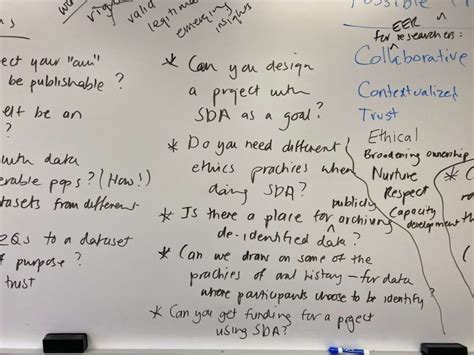 valid
legitim
emerging
insights
s
ect your "aui"
be publishable ?
elf be an
?
with data
erable pops? (How!)
tasets from different
RQs to a dataset
f purpose ?
trust
* Can you design
a project with
SDA as a goal?
* Do you need different
ethics practices when
doing SDA?
* Is there a place for publicly archiving
de-identified data?
* Can we draw on some of the
practices of oral history - for data
where participants choose to be identify?
* Can you get funding for a project
using SDA?
Possible
EER
for researchers:
Collaborative
Contextualized
Trust
Ethical
Broadening ownership
Nurture
Respect
Capacity
development